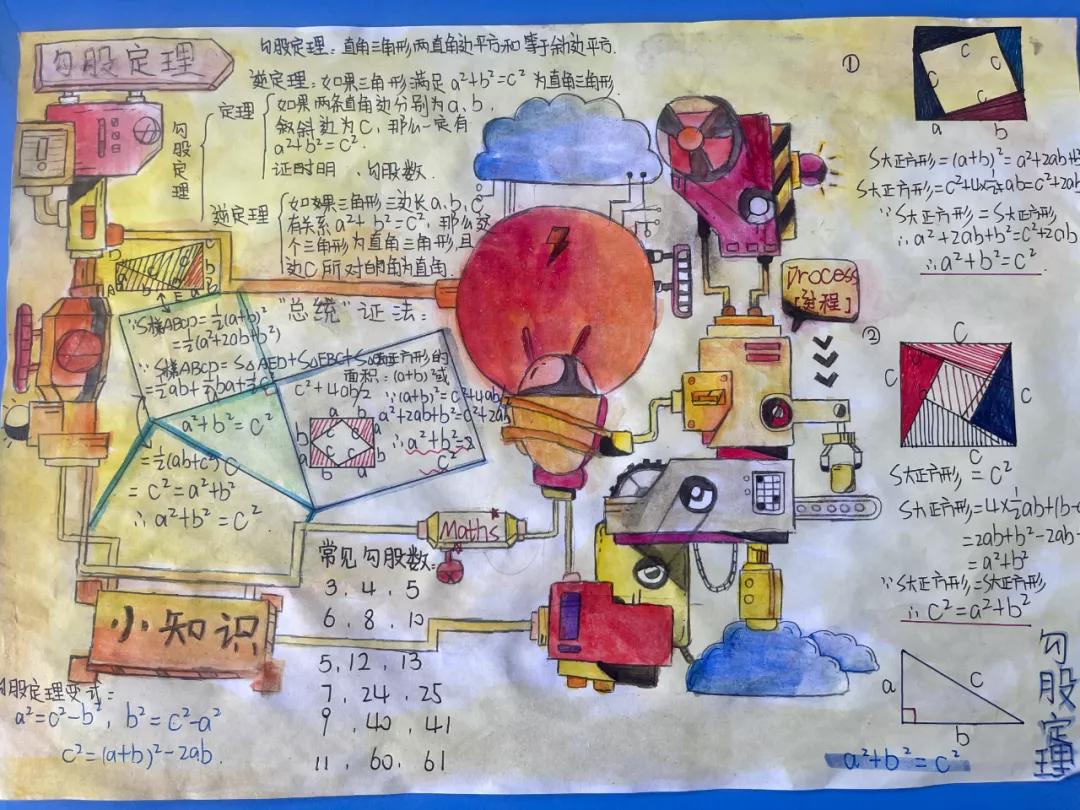 勾股定理
勾股定理：直角三角形两直角边平方和等于斜边平方.
逆定理：如果三角形满足a²+b²=c²为直角三角形.
勾股定理
定理
如果两条直角边分别为a,b,
斜边为C,那么一定有
a²+b²=c².
证明 、勾股数.
逆定理
如果三角形三边长a,b,c
有关系a²+b²=c²,那么这
个三角形为直角三角形,且
边C所对的角为直角.
"总统"证法：
∵S梯ABCD=½(a+b)²
=½(a²+2ab+b²)
a²+b²=c²
=½(ab+c²)
=c²=a²+b²
∴a²+b²=c².
面积：(a+b)²或
c²+4ab/2
∵(a+b)²=c²+4ab
a²+2ab+b²=c²+2ab
∴a²+b²=
c²
a b
b a
a b
b a
c c
Maths
常见勾股数：
3、4、5
6、8、10
5,12、13
7、24、25
9、40、41
11、60、61
小知识
勾股定理变式：
a²=c²-b², b²=c²-a²
c²=(a+b)²-2ab.
Process
[过程]
①
c
c c
c
a b
S大正方形=(a+b)²=a²+2ab+
S大正方形=c²+4×½ab=c²+2ab
∵S大正方形=S大正方形
∴a²+2ab+b²=c²+2ab
∴a²+b²=c².
②
c
c c
c
S大正方形=c²
S大正方形=4×½ab+(b-
=2ab+b²-2ab+
=a²+b²
∵S大正方形=S大正方形
∴c²=a²+b²
a c
b
a²+b²=c²
勾股定理